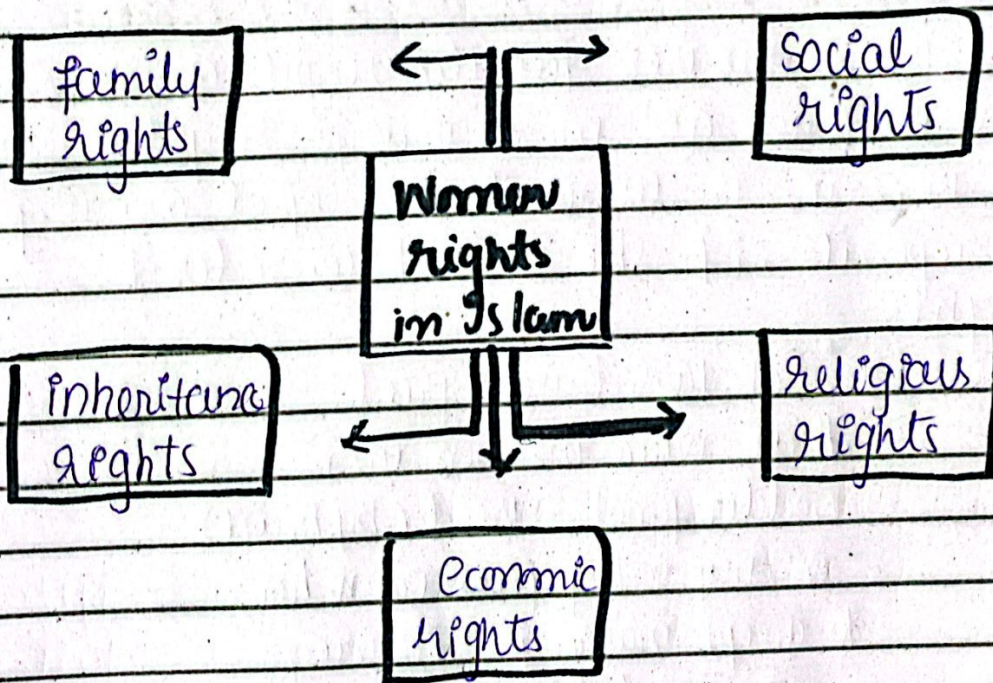 family
rights
social
rights
Women
rights
in Islam
inheritanc
rights
religious
rights
economic
rights